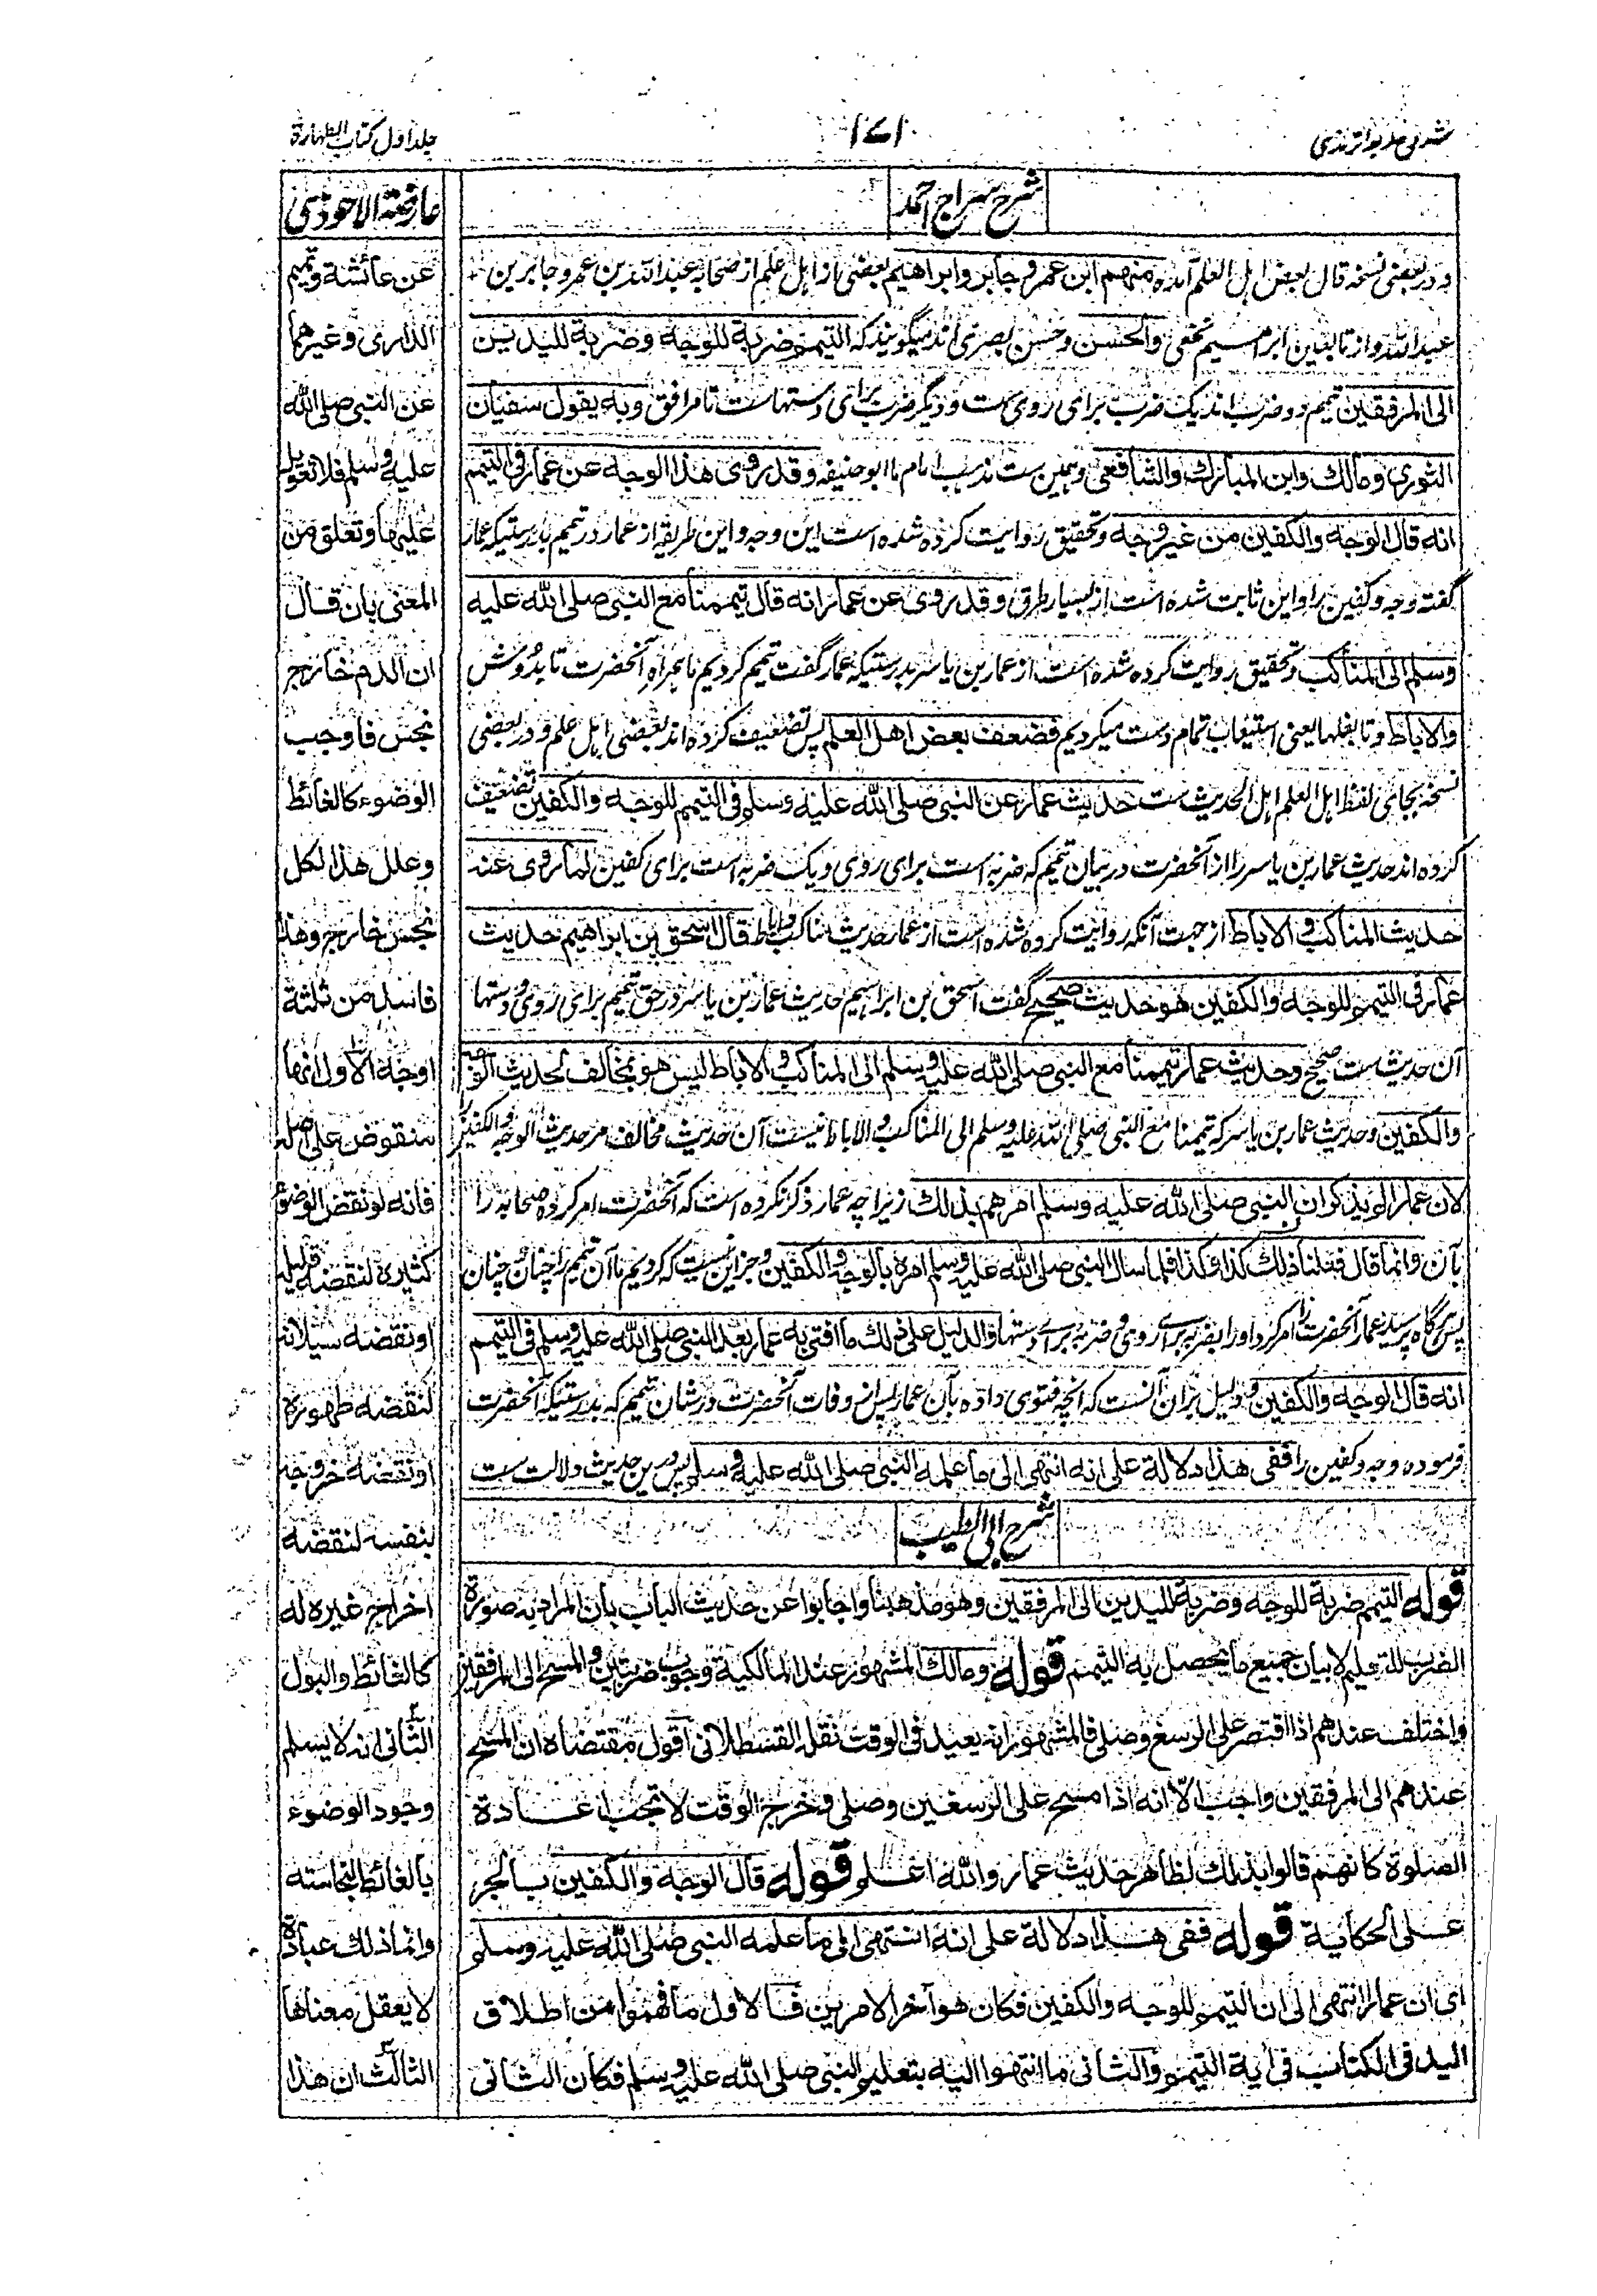 جلد اول كتاب الطهارة
١٧١
شرح سراج احمد
و در بعضی نسخه قال بعض اهل العلم آمده منهم ابن عمر و جابر وابراهيم بعضی از اهل علم از صحابه عبدالله بن عمر و جابر بن
عبدالله و از تابعین ابراهیم نخعی والحسن و حسن بصری اند میگویند که التيمم ضربة للوجه وضربة لليدين
الى المرفقين تیمم دو ضرب اند یک ضرب برای روی ست و دیگر ضرب برای دستهاست تا مرافق وبه يقول سفيان
الثوري ومالك وابن المبارك والشافعي و همین ست مذهب امام ما ابو حنیفه وقد روى هذا الوجه عن عمار في التيمم
انه قال الوجه والكفين من غير وجه و تحقیق روایت کرده شده است این وجه و این طریقه از عمار در تیمم بدرستیکه عمار
گفته وجه و کفین را و این ثابت شده است از بسیار طرق وقد روى عن عمار انه قال تيممنا مع النبى صلى الله عليه
وسلم الى المناكب و تحقیق روایت کرده شده است از عمار بن یاسر بدرستیکه عمار گفت تیمم کردیم ما بهمراه آنحضرت تا بدوش
والاباط و تا بغلها یعنی استیعاب تمام دست میکردیم فضعف بعض اهل العلم پس تضعیف کرده اند بعضی اهل علم و در بعضی
نسخه بجای لفظ اهل العلم اهل الحدیث ست حديث عمار عن النبى صلى الله عليه وسلم فى التيمم للوجه والكفين تضعیف
کرده اند حدیث عمار بن یاسر را از آنحضرت در بیان تیمم که ضربه است برای روی و یک ضربه است برای کفین لما روى عنه
حديث المناكب والاباط از جهت آنکه روایت کرده شده است از عمار حدیث مناکب و اباط قال اسحق بن ابراهيم حديث
عمار في التيمم للوجه والكفين هو حديث صحيح گفت اسحق بن ابراهیم حدیث عمار بن یاسر در حق تیمم برای روی و دستها
آن حدیث ست صحیح وحديث عمار تيممنا مع النبى صلى الله عليه وسلم الى المناكب والاباط ليس هو بمخالف لحديث الوجه
والكفين و حدیث عمار بن یاسر که تیممنا مع النبی صلی الله علیه وسلم الی المناکب و الاباط نیست آن حدیث مخالف مر حدیث الوجه والکفین را
لان عمارا لم يذكر ان النبى صلى الله عليه وسلم امرهم بذلك زیرا چه عمار ذکر نکرده است که آنحضرت امر کرده صحابه را
بآن وانما قال فعلنا ذلك كذا وكذا فلما سال النبى صلى الله عليه وسلم امره بالوجه والكفين و جز این نیست که کردیم ما آن تیمم را چنان چنان
پس هرگاه پرسید عمار آنحضرت را امر کرد او را بضربه برای روی و ضربه برای دستها والدليل على ذلك ما افتى به عمار بعد النبى صلى الله عليه وسلم في التيمم
انه قال الوجه والكفين و دلیل بران آنست که آنچه فتوی داده بآن عمار پس از وفات آنحضرت در شان تیمم که بدرستیکه آنحضرت
فرموده وجه و کفین را ففى هذا دلالة على انه انتهى الى ما علمه النبى صلى الله عليه وسلم پس درین حدیث دلالت ست
شرح ابى الطيب
قوله التيمم ضربة للوجه وضربة لليدين الى المرفقين وهو مذهبنا واجابوا عن حديث الباب بان المراد به صورة
الضرب للتعليم لا بيان جميع ما يحصل به التيمم قوله ومالك المشهور عند المالكية وجوب ضربتين والمسح الى المرفقين
واختلف عندهم اذا اقتصر على الرسغ وصلى فالمشهور انه يعيد في الوقت نقله القسطلانى اقول مقتضاه ان المسح
عندهم الى المرفقين واجب الا انه اذا مسح على الرسغين وصلى وخرج الوقت لا تجب اعادة
الصلوة كانهم قالوا بذلك لظاهر حديث عمار والله اعلم قوله قال الوجه والكفين بالجر
على الحكاية قوله ففى هذا دلالة على انه انتهى الى ما علمه النبى صلى الله عليه وسلم
اى ان عمارا انتهى الى ان التيمم للوجه والكفين فكان هو آخر الامرين فالاول ما فهموا من اطلاق
اليد فى الكتاب فى آية التيمم والثانى ما انتهوا اليه بتعليم النبى صلى الله عليه وسلم فكان الثانى
عارضة الاحوذى
عن عائشة وتميم
الدارى وغيرهما
عن النبى صلى الله
عليه وسلم فلا تعويل
عليها وتعلق من
المعنى بان قال
ان الدم خارج
نجس فاوجب
الوضوء كالغائط
وعلل هذا لكل
نجس خارج وهذا
فاسد من ثلثة
اوجه الاول انها
منقوض على اصله
فانه لو نقض الوضوء
كثيره لنقضه قليله
او نقضه سيلانه
لنقضه ظهوره
او نقضه خروجه
بنفسه لنقضه
اخراج غيره له
كالغائط والبول
الثانى انه لا يسلم
وجود الوضوء
بالغائط لنجاسته
وانما ذلك عبادة
لا يعقل معناها
الثالث ان هذا